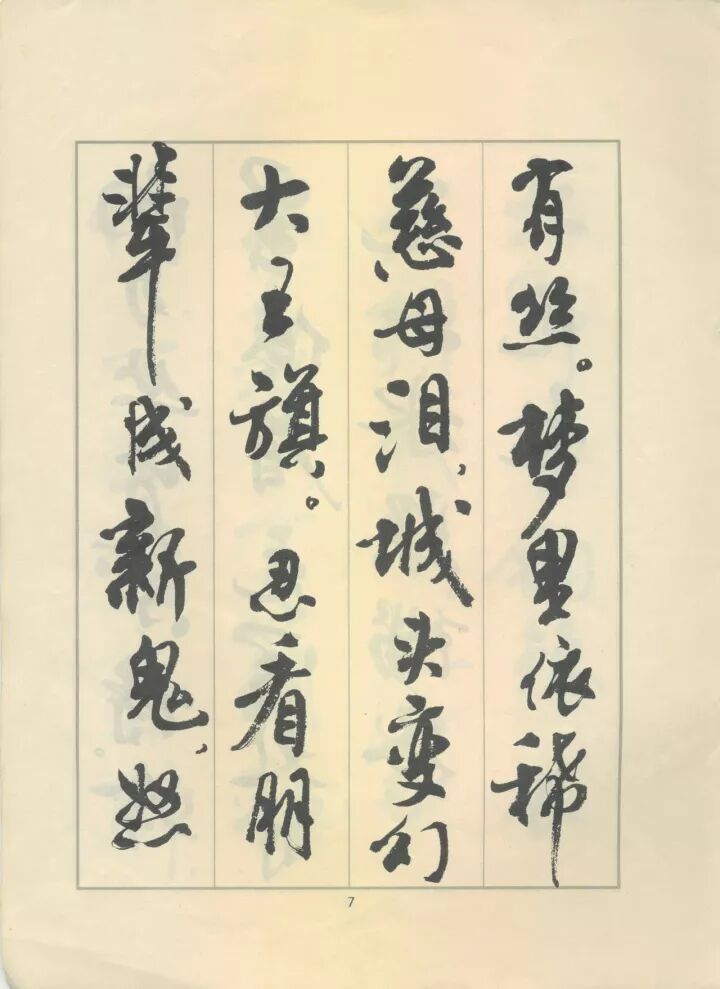 有丝。梦里依稀
慈母泪，城头变幻
大王旗。忍看朋
辈成新鬼，怒
7